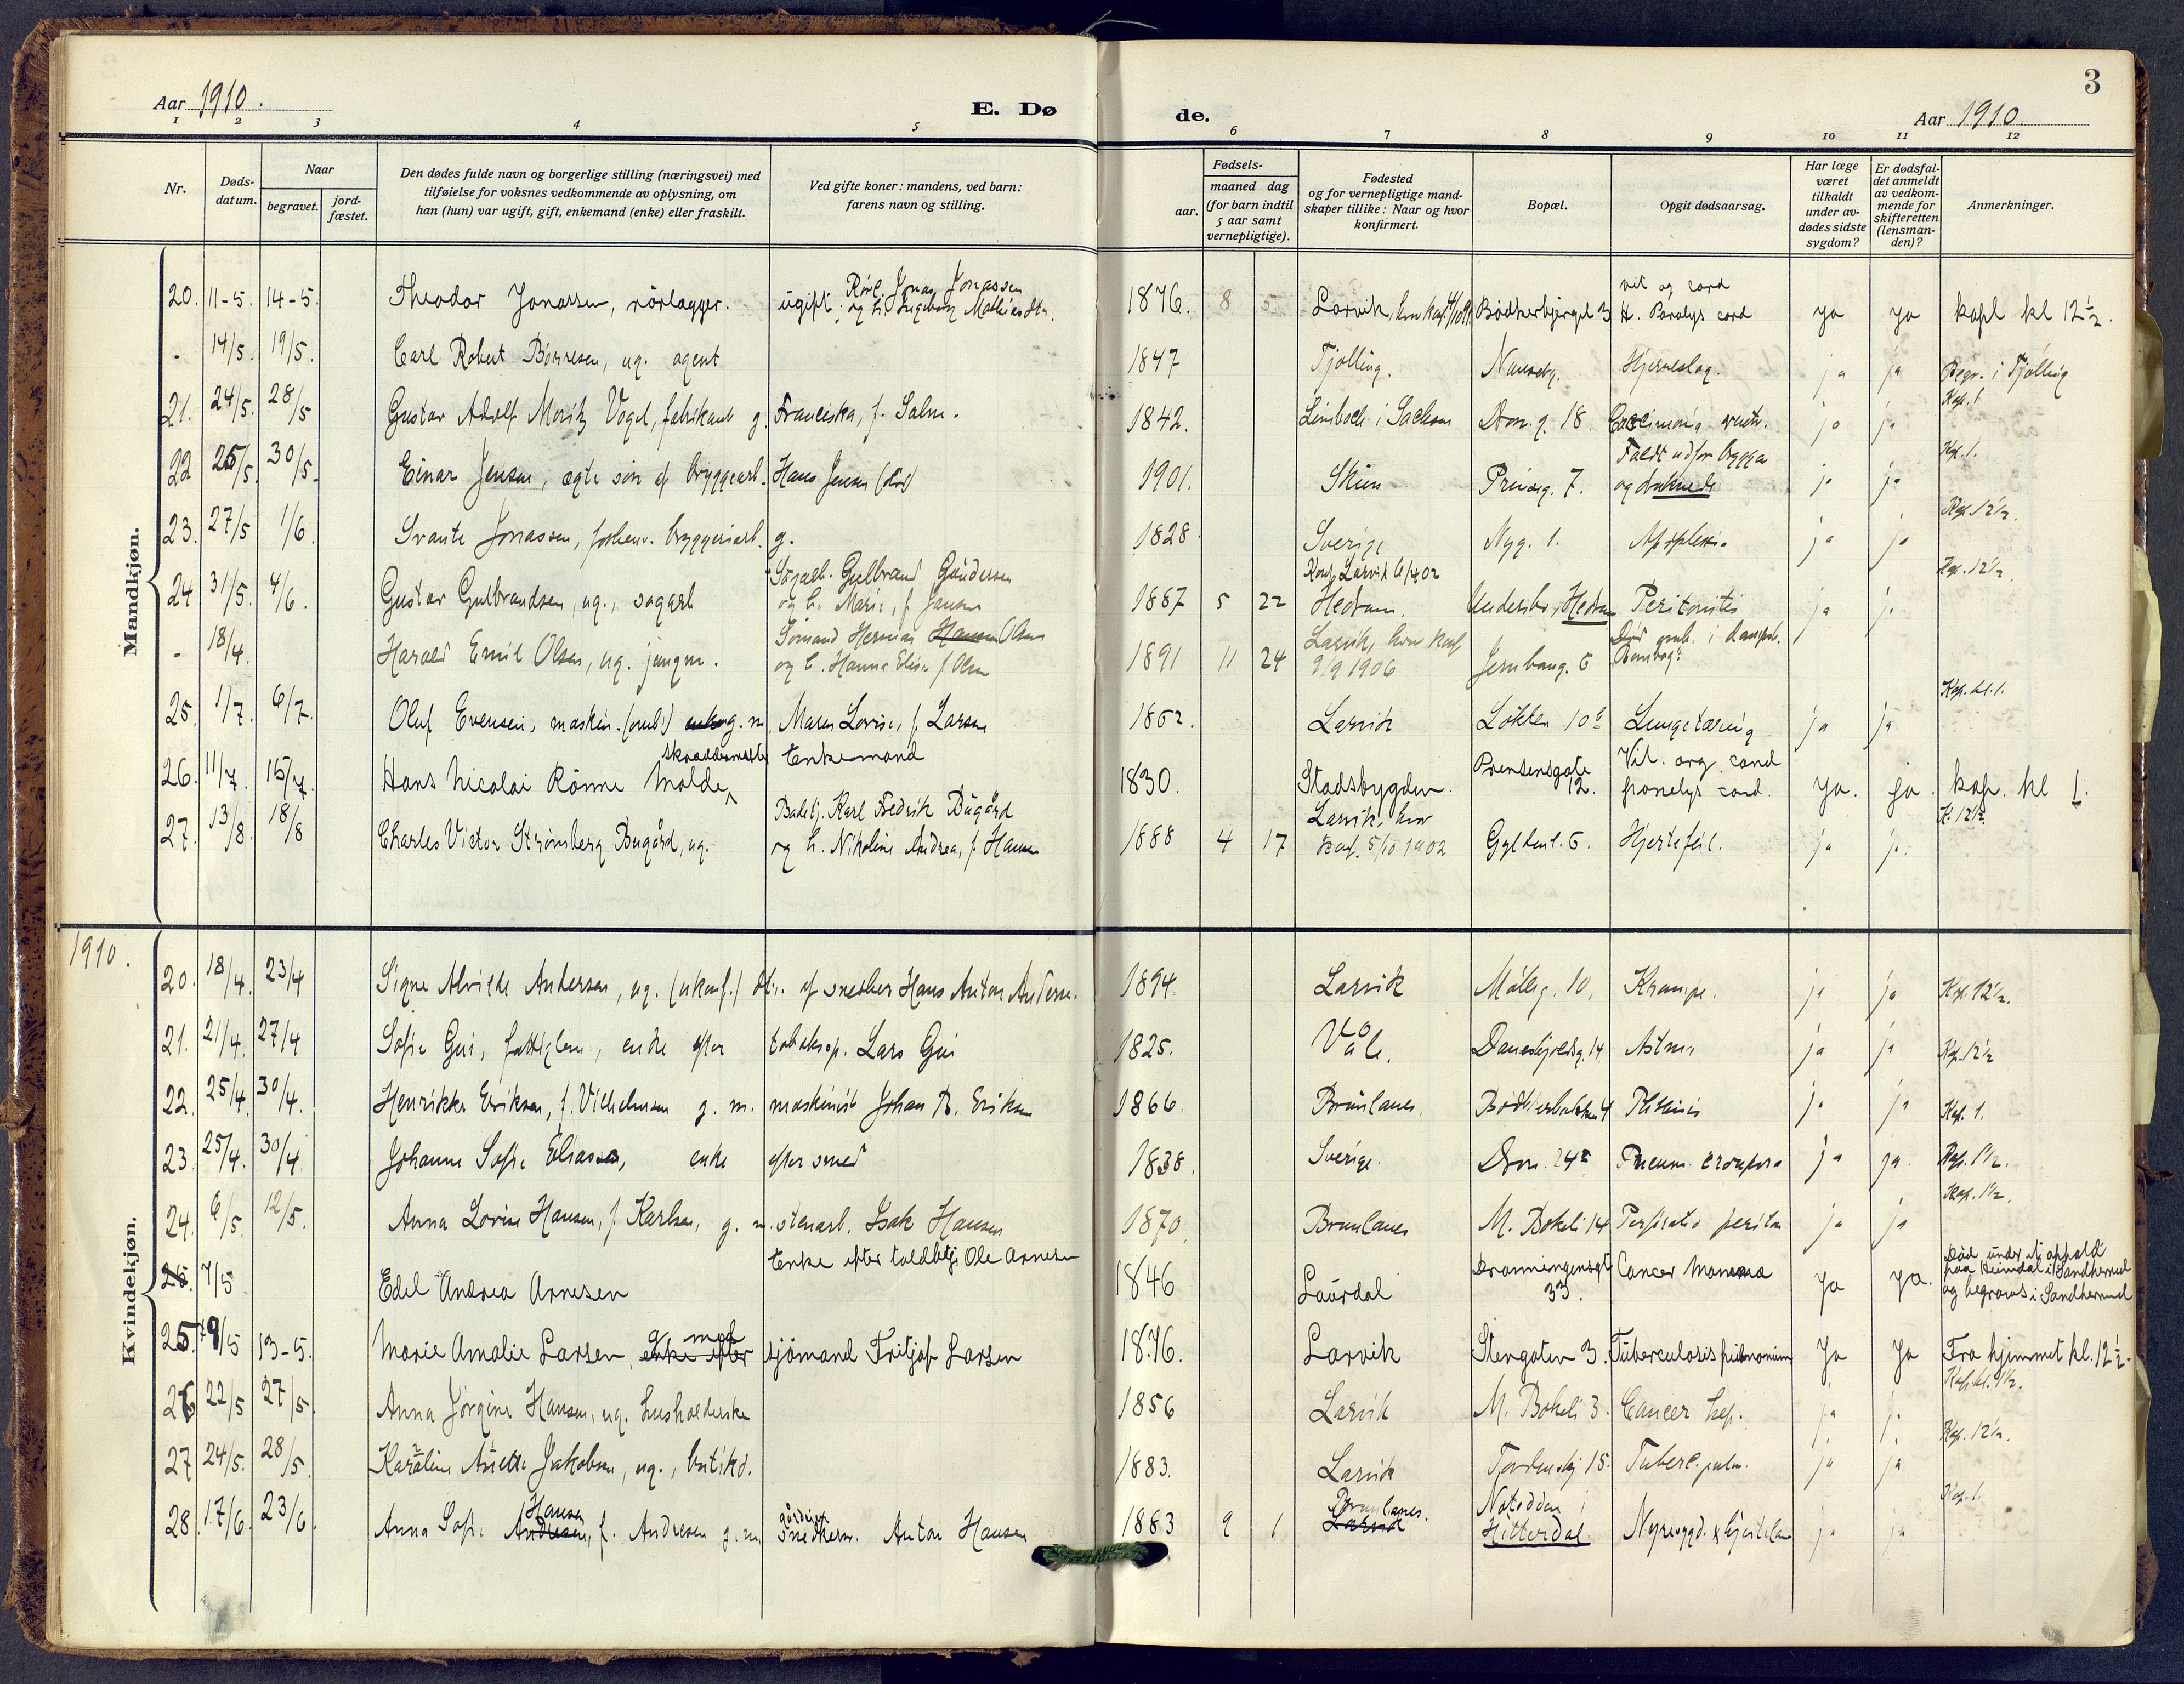 3
Aar 1910.
E. Dø
de.
Aar 1910.
1 2 3 4 5 6 7 8 9 10 11 12
Nr.
Døds-
datum.
Naar
begravet.
jord-
fæstet.
Den dødes fulde navn og borgerlige stilling (næringsvei) med
tilføielse for voksnes vedkommende av oplysning, om
han (hun) var ugift, gift, enkemand (enke) eller fraskilt.
Ved gifte koner: mandens, ved barn:
farens navn og stilling.
Fødsels-
aar.
maaned dag
(for barn indtil
5 aar samt
vernepligtige).
Fødested
og for vernepligtige mand-
skaper tillike: Naar og hvor
konfirmert.
Bopæl.
Opgit dødsaarsag.
Har læge
været
tilkaldt
under av-
dødes sidste
sygdom?
Er dødsfal-
det anmeldt
av vedkom-
mende for
skifteretten
(lensman-
den)?
Anmerkninger.
Mandkjøn.
20. 11-5. 14-5. Theodor Jonassen, rörlægger. ugift. Jonas Jonassen og h. Ingeborg 1876. 8 5 Larvik, Bødkerbjerget 3 vit og cord H. Paralys cord ja ja kapl kl 12½.
- 14/5. 19/5. Carl Robert Børresen, ug. agent 1847 Tjølling. Nansetg. Hjerneslag. ja ja Begr. i Tjølling
21. 24/5. 28/5 Gustav Adolf Moritz Vogel, fabrikant g. Franciska, f. Salm. 1842. Limbach i Sachsen Dron. g. 18. ja ja Kap. 1
22 25/5. 30/5. Einar Jensen, ægte søn af bryggearb. Hans Jensen (død) 1901. Skien Prinsg. 7. Faldt udfor brygga og druknede ja ja Kap. 1.
23. 27/5 1/6. Svante Jonassen, forhenv. bryggeriarb. g. 1828 Sverige Nyg. 1. Apoplexia ja ja Kap. 12½.
24 31/5. 4/6. Gustav Gulbrandsen, ug., sagarb Sagarb. Gulbrand Gundersen og h. Marie, f. Jansen 1887 5 22 Konf. Larvik 6/4 02 Hedrum. Undersbo, Hedrum Peritonitis ja ja Kap. 12½.
- 18/4. Harald Emil Olsen, ug. jungm. Sømand Herman Hansen Olsen og h. Hanna Elise f. Olsen 1891 11 24 Larvik, hvor konf 9/9 1906 Jernbaneg. 6 Død omb. i dampsk.
25. 1/7. 6/7. Oluf Evensen, maskin. (omb.) g. m. Maren Lovise, f. Larsen 1862. Larvik Løkken 10 b Lungetæring ja ja Kap. kl. 1.
26. 11/7. 15/7. Hans Nicolai Rönne Molde, skræddermester Enkemand 1830. Stadsbygden. Prinsensgate 12. Vit. org. cord paralys cord. ja. ja. kap. kl 1.
27. 13/8. 18/8 Charles Victor Strømberg Bugård, ug. Badetj. Karl Fredrik Bugård og h. Nikoline Andrea, f. Hansen 1888 4 17 Larvik, hvor konf. 5/10 1902 Gyldenl. 6. Hjertefeil. ja ja. K. 12½.
1910.
Kvindekjøn.
20. 18/4. 23/4 Signe Alvilde Andersen, ug. (ukonf.) dtr. af snedker Hans Anton Andersen. 1894. Larvik Mølleg. 10, Krampe. ja ja Kap. 12½.
21. 21/4. 27/4 Sofie Gui, fattiglem, enke efter tobaksp. Lars Gui 1825. Våle. Daneskjoldsg. 14 Astma ja ja Kap. 12½
22. 25/4. 30/4. Henrikke Eriksen, f. Vilhelmsen g. m. maskinist Johan B. Eriksen 1866. Brunlanes Bødkerbakken 4 Phthisis ja ja Kap. 1.
23. 25/4. 30/4. Johanne Sofie Eliassen, enke efter smed 1838. Sverige. Dron. 24 Pneum. crouposa ja ja. Kap. 1½.
24. 6/5. 12/5. Anna Lovise Hansen, f. Karlsen, g. m. stenarb. Isak Hansen 1870. Brunlanes M. Bøkeli 14 Perforatio periton ja ja Kap. 1½.
25. 7/5 Edel Andrea Arnesen Enke efter toldbetj. Ole Arnesen 1846 Laurdal Dronningensgt 33. Cancer Mamma ja ja. Død under et ophold paa Heimdal i Sandherred og begraves i Sandherred
25. 9/5 13-5. Marie Amalie Larsen, enke efter g. med sjömand Fritjof Larsen 1876. Larvik Stengaten 3. Tuberculosis pulmonum ja ja Fra hjemmet kl. 12½.
26 22/5 27/5. Anna Jørgine Hansen, ug. husholderske 1856 Larvik M. Bøkeli 3. Cancer hep. ja ja. Kap. kl. 1½.
27 24/5. 28/5. Karoline Anette Jakobsen, ug., butikd. 1883. Larvik Tordenskj 15. Tuberc. pulm. ja ja Kap. 12½.
28. 17/6. 23/6. Anna Sofie Andresen, Hansen f. Andresen g. m. snedkerm. Anton Hansen 1883 9 1 Larvik Brunlanes. Notodden i Hitterdal Nyresygd. & hjertelam ja ja Kap. 1.